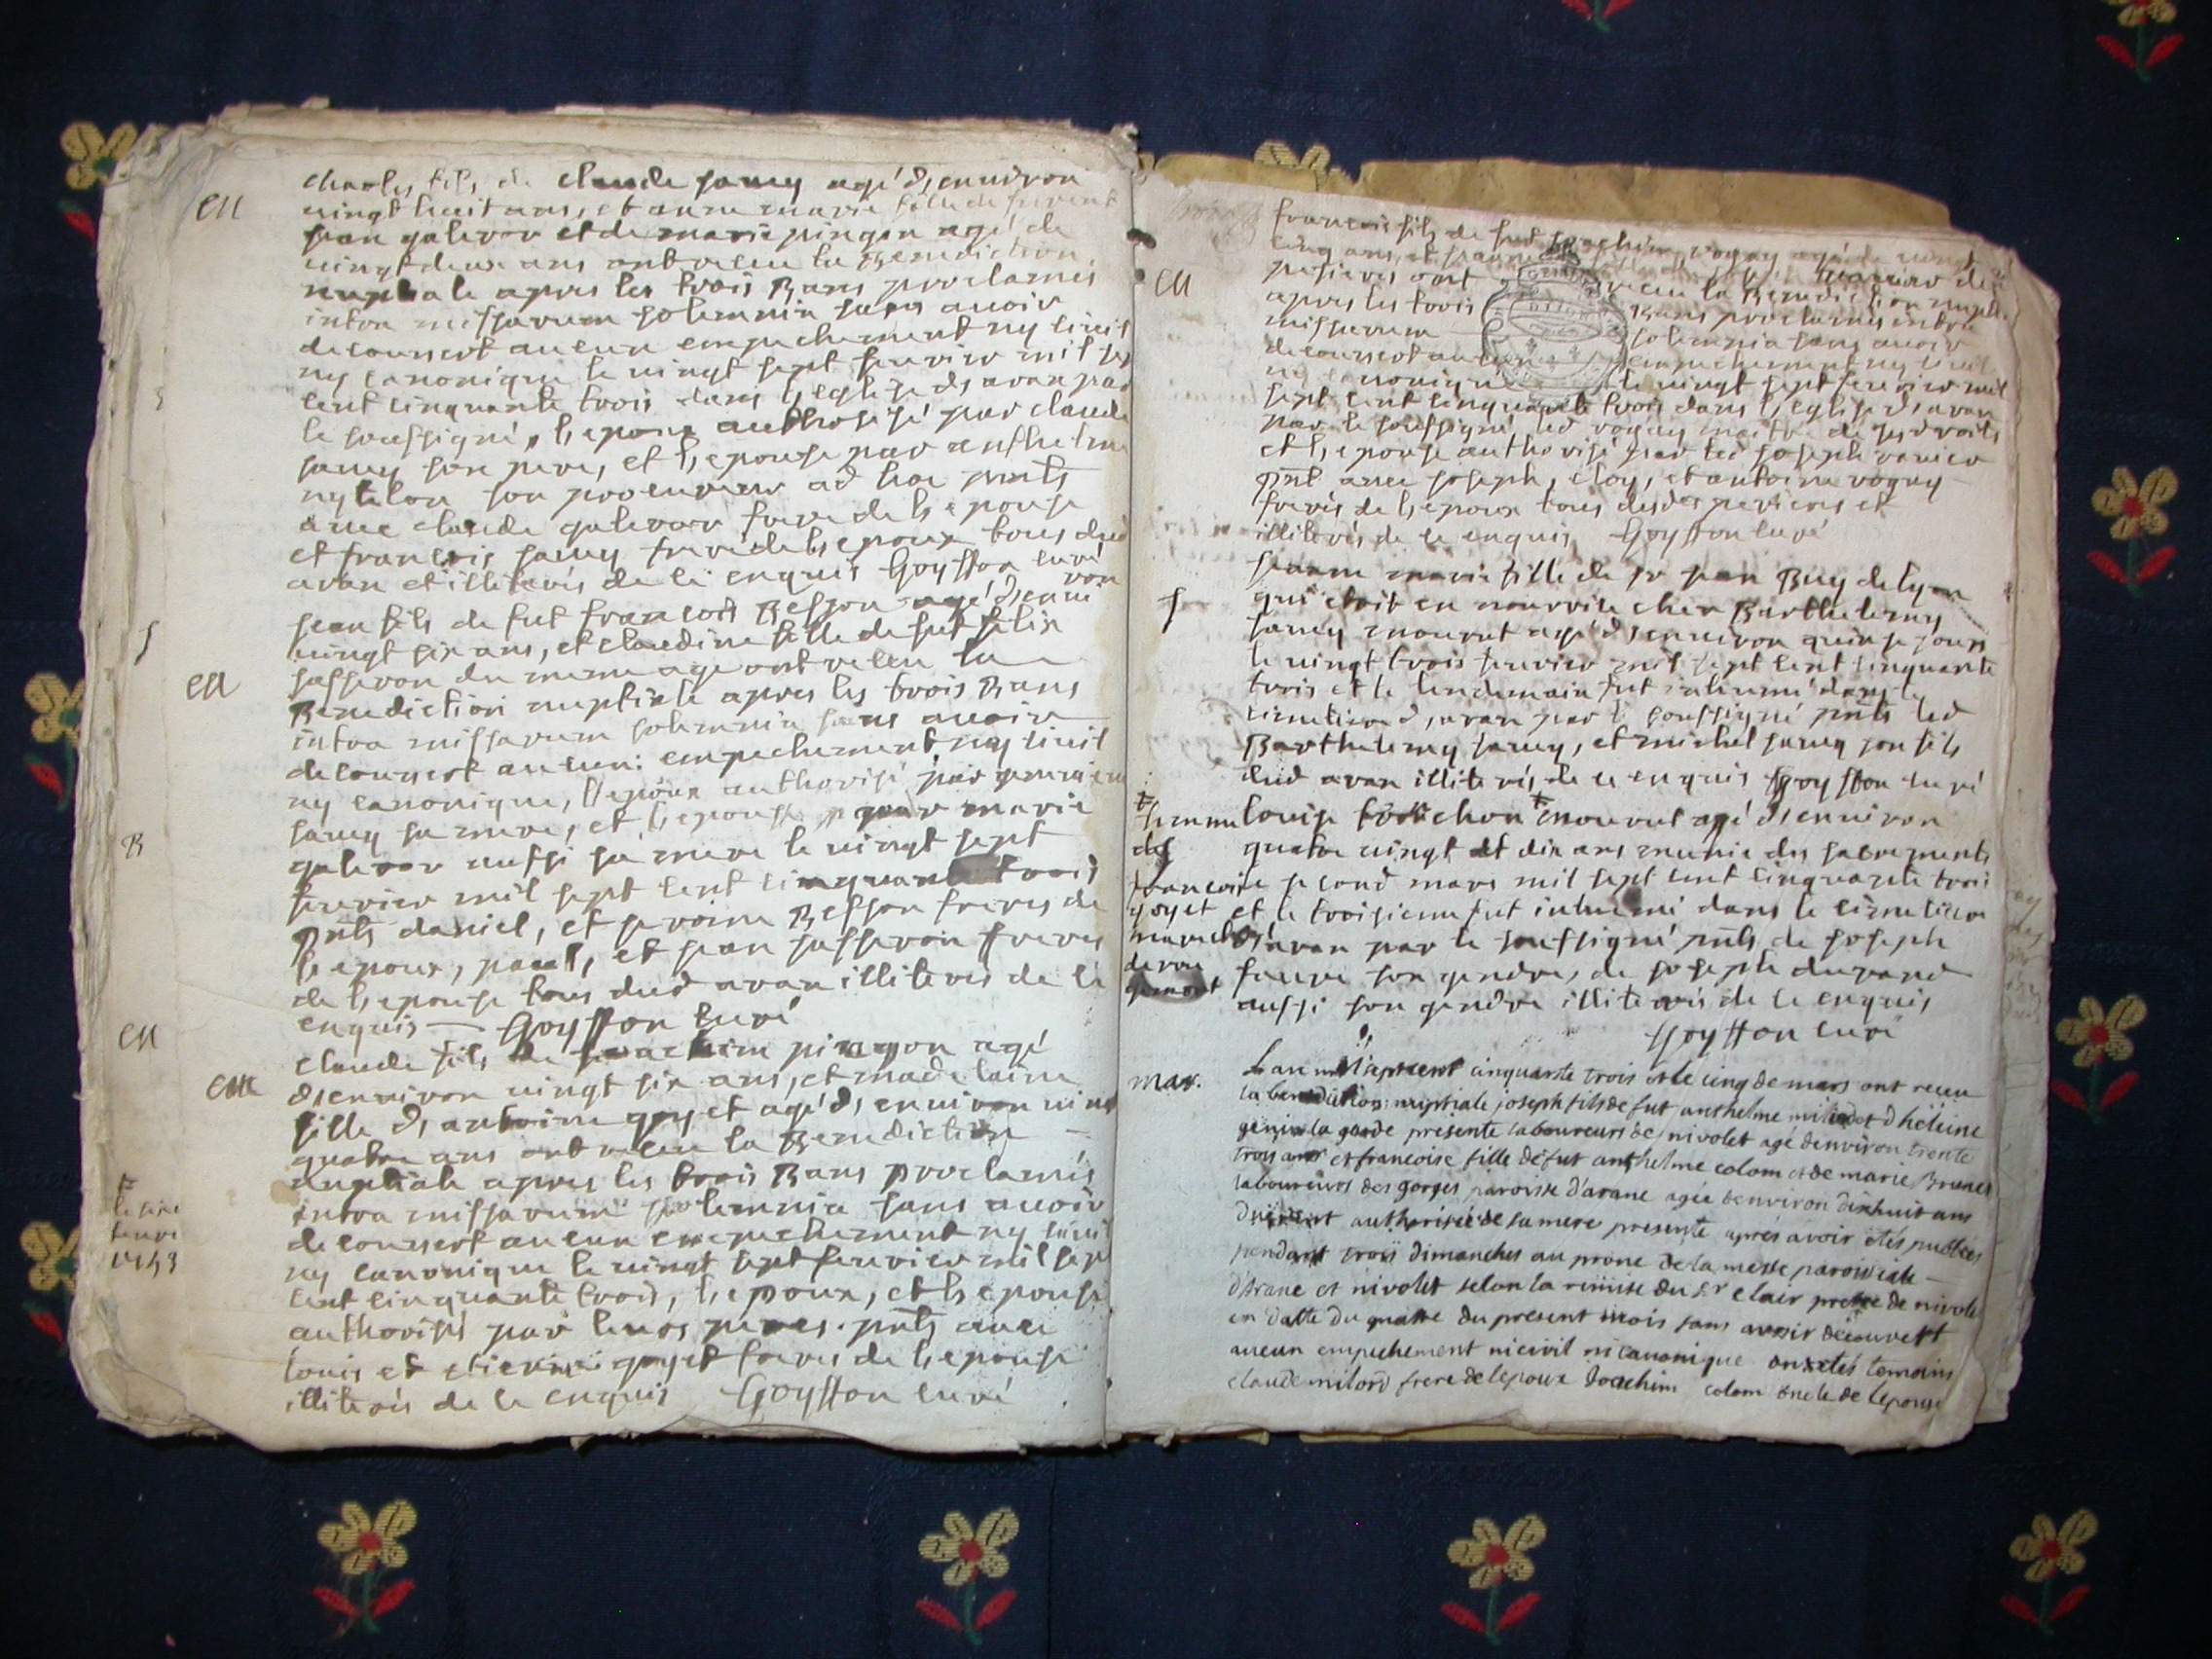 charles fils de claude jamey agé d,environ
vingt huit ans, et anne marie fille de
jean galevar et de marie pingon agé de
vingt deux ans ont receu la Benediction
nuptiale apres les trois Bans proclamés
intra missarum solemnia sans avoir
decouvert aucun empechement ny civil
ny canonique le vingt sept fevrier mil sep
cent cinquante trois dans l,eglise d,aran par
le soussigné, l,epoux authorisé par claude
jamey son pere, et l,epouse par anthelme
son procureur ad hoc pnts
avec claude galevar frere de l,epouse
et francois jamey frere de l,epoux tous dud
aran et illiterés de ce enquis Goyffon curé
en
jean fils de fut francois Besson agé d,envi
ron
vingt six ans, et claudine fille de fut felix
jasseron du meme age ont receu la
Benediction nuptiale apres les trois Bans
intra missarum solemnia sans avoir
decouvert aucun empechement ny civil
ny canonique, l,epoux authorisé par
jamey sa mere, et l,epouse par marie
galevar aussi sa mere le vingt sept
fevrier mil sept cent cinquante trois
pnts daniel, et jerome Besson freres de
l,epoux, paul, et jean jasseron freres
de l,epouse tous dud aran illiterés de ce
enquis Goyffon curé
claude fils de joachim pingon agé
d,environ vingt six ans, et madelaine
fille d,antoine goyet agé d,environ vingt
quatre ans ont receu la Benediction
nuptiale apres les trois Bans proclamés
intra missarum solemnia sans avoir
decouvert aucun empechement ny civil
ny canonique le vingt sept fevrier mil sept
cent cinquante trois, l,epoux, et l,epouse
authorisés par leurs peres pnts avec
louis et etienne goyet freres de l,epouse
illiterés de ce enquis Goyffon curé
francois fils de fut joachim vogay agé de vingt
cinq ans, et
ont receu la Benediction nupti
apres les trois Bans proclamés intra
missarum solemnia sans avoir
decouvert aucun empechement ny civil
ny canonique le vingt sept fevrier mil
sept cent cinquante trois dans l,eglise d,aran
par le soussigné led vogay maitre de ses droits
et l,epouse authorisé par led joseph
pnt avec joseph, eloy, et antoine vogay
freres de l,epoux tous desd et
illiterés de ce enquis Goyffon curé
jeanne marie fille de sr jean Buy de lyon
qui etoit en nourrice chez Barthelemy
jamey mourut agé d,environ quinze jours
le vingt trois fevrier mil sept cent cinquante
trois et le lendemain fut inhumé dans le
cimetiere d,aran par le soussigné pnts led
Barthelemy jamey, et michel jamey son fils
dud aran illiterés de ce enquis Goyffon curé
louise mourut agé d,environ
quatre vingt et dix ans munie des sacrements
le second mars mil sept cent cinquante trois
et le troisieme fut inhumé dans le cimetiere
d,aran par le soussigné pnts de joseph
faure son gendre, de joseph durand
aussi son gendre illiterés de ce enquis
Goyffon curé
mar.
L an mil sept cent cinquante trois et le cinq de mars ont receu
la benediction nuptiale joseph fils de fut anthelme milord et d'heleine
la garde presente laboureurs de nivolet agé denviron trente
trois ans et francoise fille de fut anthelme colom et de marie Brunet
laboureurs des gorges paroisse d'arane agée denviron dixhuit ans
duement authorisée de sa mere presente aprés avoir étés publiés
pendant trois dimanches au prone de la messe paroissiale
d'Arane et nivolet selon la remise du Sr clair pretre de nivole
en datte du quatre du present mois sans avoir découvert
aucun empechement ni civil ni canonique ont etés temoins
claude milord frere de l'epoux Joachim colom oncle de l'epouse